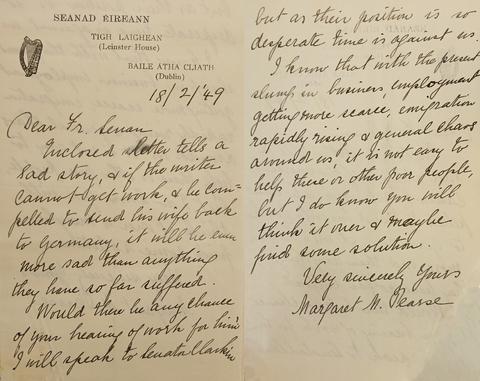 SEANAD ÉIREANN
TIGH LAIGHEAN
(Leinster House)
BAILE ÁTHA CLIATH
(Dublin)
18/2/'49
Dear Fr. Senan
Enclosed letter tells a
sad story, & if the writer
cannot get work, & be com-
pelled to send his wife back
to Germany, it will be even
more sad than anything
they have so far suffered.
Would there be any chance
of your hearing of work for him?
I will speak to Senator Larkin
but as their position is so
desperate time is against us.
I know that with the present
slump in business, employment
getting more scarce, emigration
rapidly rising & general chaos
around us, it is not easy to
help these or other poor people,
but I do know you will
think it over & maybe
find some solution.
Very sincerely Yours
Margaret M. Pearse